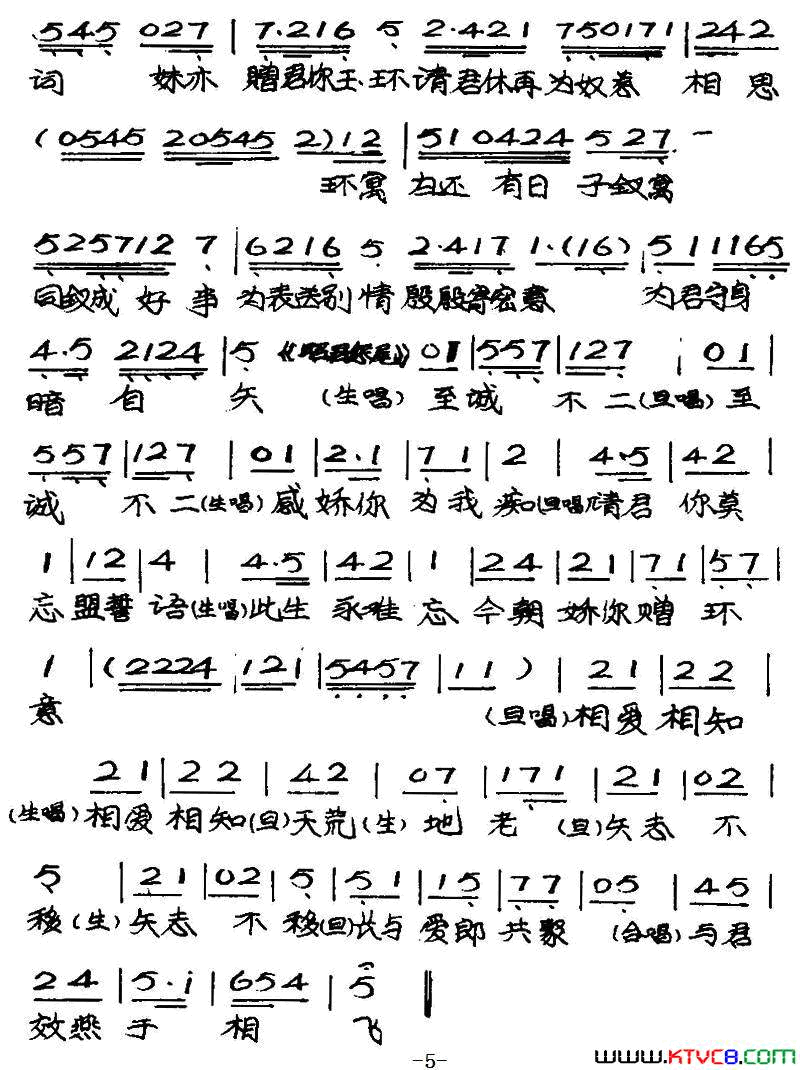 545 027 | 7·216 5 2·421 750171 | 242
词 妹亦 赠君你玉环请君休再为奴惹 相思
(0545 20545 2)12 | 510424 527 -
环寓 为还 有日 子钗寓
525712 7 | 6216 5 2·417 1·(16) | 5 1 1165
同钗成 好 事 为表送别情 殷殷寄密意 为君守身
4·5 2124 | 5 01 | 557 | 127 | 01 |
暗 自 矢 (生唱) 至诚 不二(旦唱)至
557 | 127 | 01 | 2·1 | 71 | 2 | 4·5 | 42 |
诚 不二(生唱)感娇你 为我痴(旦唱)请君 你莫
1 | 12 | 4 | 4·5 | 42 | 1 | 24 | 21 | 71 | 57 |
忘盟誓语(生唱)此生 永难忘 今朝娇你赠环
1 | (2224 121 | 5457 | 11) | 21 | 22 |
意 (旦唱)相爱相知
21 | 22 | 42 | 07 | 171 | 21 | 02 |
(生唱)相爱相知(旦)天荒(生)地 老 (旦)矢志 不
5 | 21 | 02 | 5 | 51 | 15 | 77 | 05 | 45 |
移(生)矢志 不 移(旦)长与爱郎共聚 (合唱)与君
24 | 5·i | 654 | 5 ‖
效燕于 相 飞
-5-
www.KTVC8.com